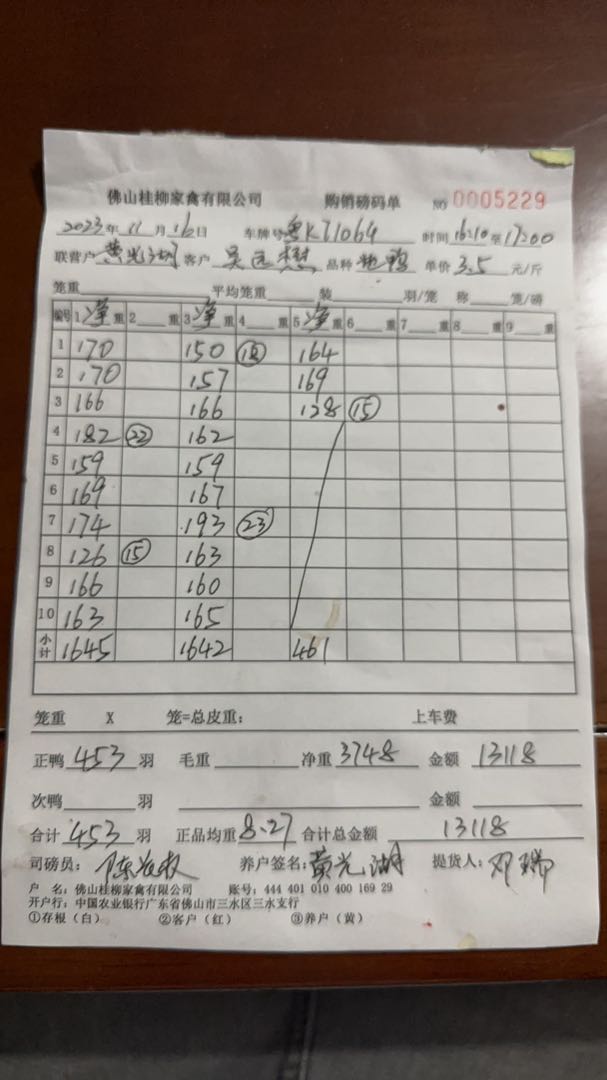 佛山桂柳家禽有限公司 购销磅码单 NO 0005229
2023年 11月 16日 车牌号 粤K71064 时间 16:10 至 17:00
联营户 黄光湖 客户 吴远 品种 鸭 单价 3.5 元/斤
笼重 平均笼重 装 羽/笼 称 笼/磅
编号 1 净 重 2 重 3 净 重 4 重 5 净 重 6 重 7 重 8 重 9 重
1 170 150 164
2 170 157 169
3 166 166 128 ⑮
4 182 ㉒ 162
5 159 159
6 169 167
7 174 193 ㉓
8 126 ⑮ 163
9 166 160
10 163 165
小计 1645 1642 461
笼重 X 笼=总皮重: 上车费
正鸭 453 羽 毛重 净重 3748 金额 13118
次鸭 羽 金额
合计 453 羽 正品均重 8.27 合计总金额 13118
司磅员: 陈 养户签名: 黄光湖 提货人: 邓瑞
户 名: 佛山桂柳家禽有限公司 账号: 444 401 010 400 169 29
开户行: 中国农业银行广东省佛山市三水区三水支行
①存根(白) ②客户(红) ③养户(黄)